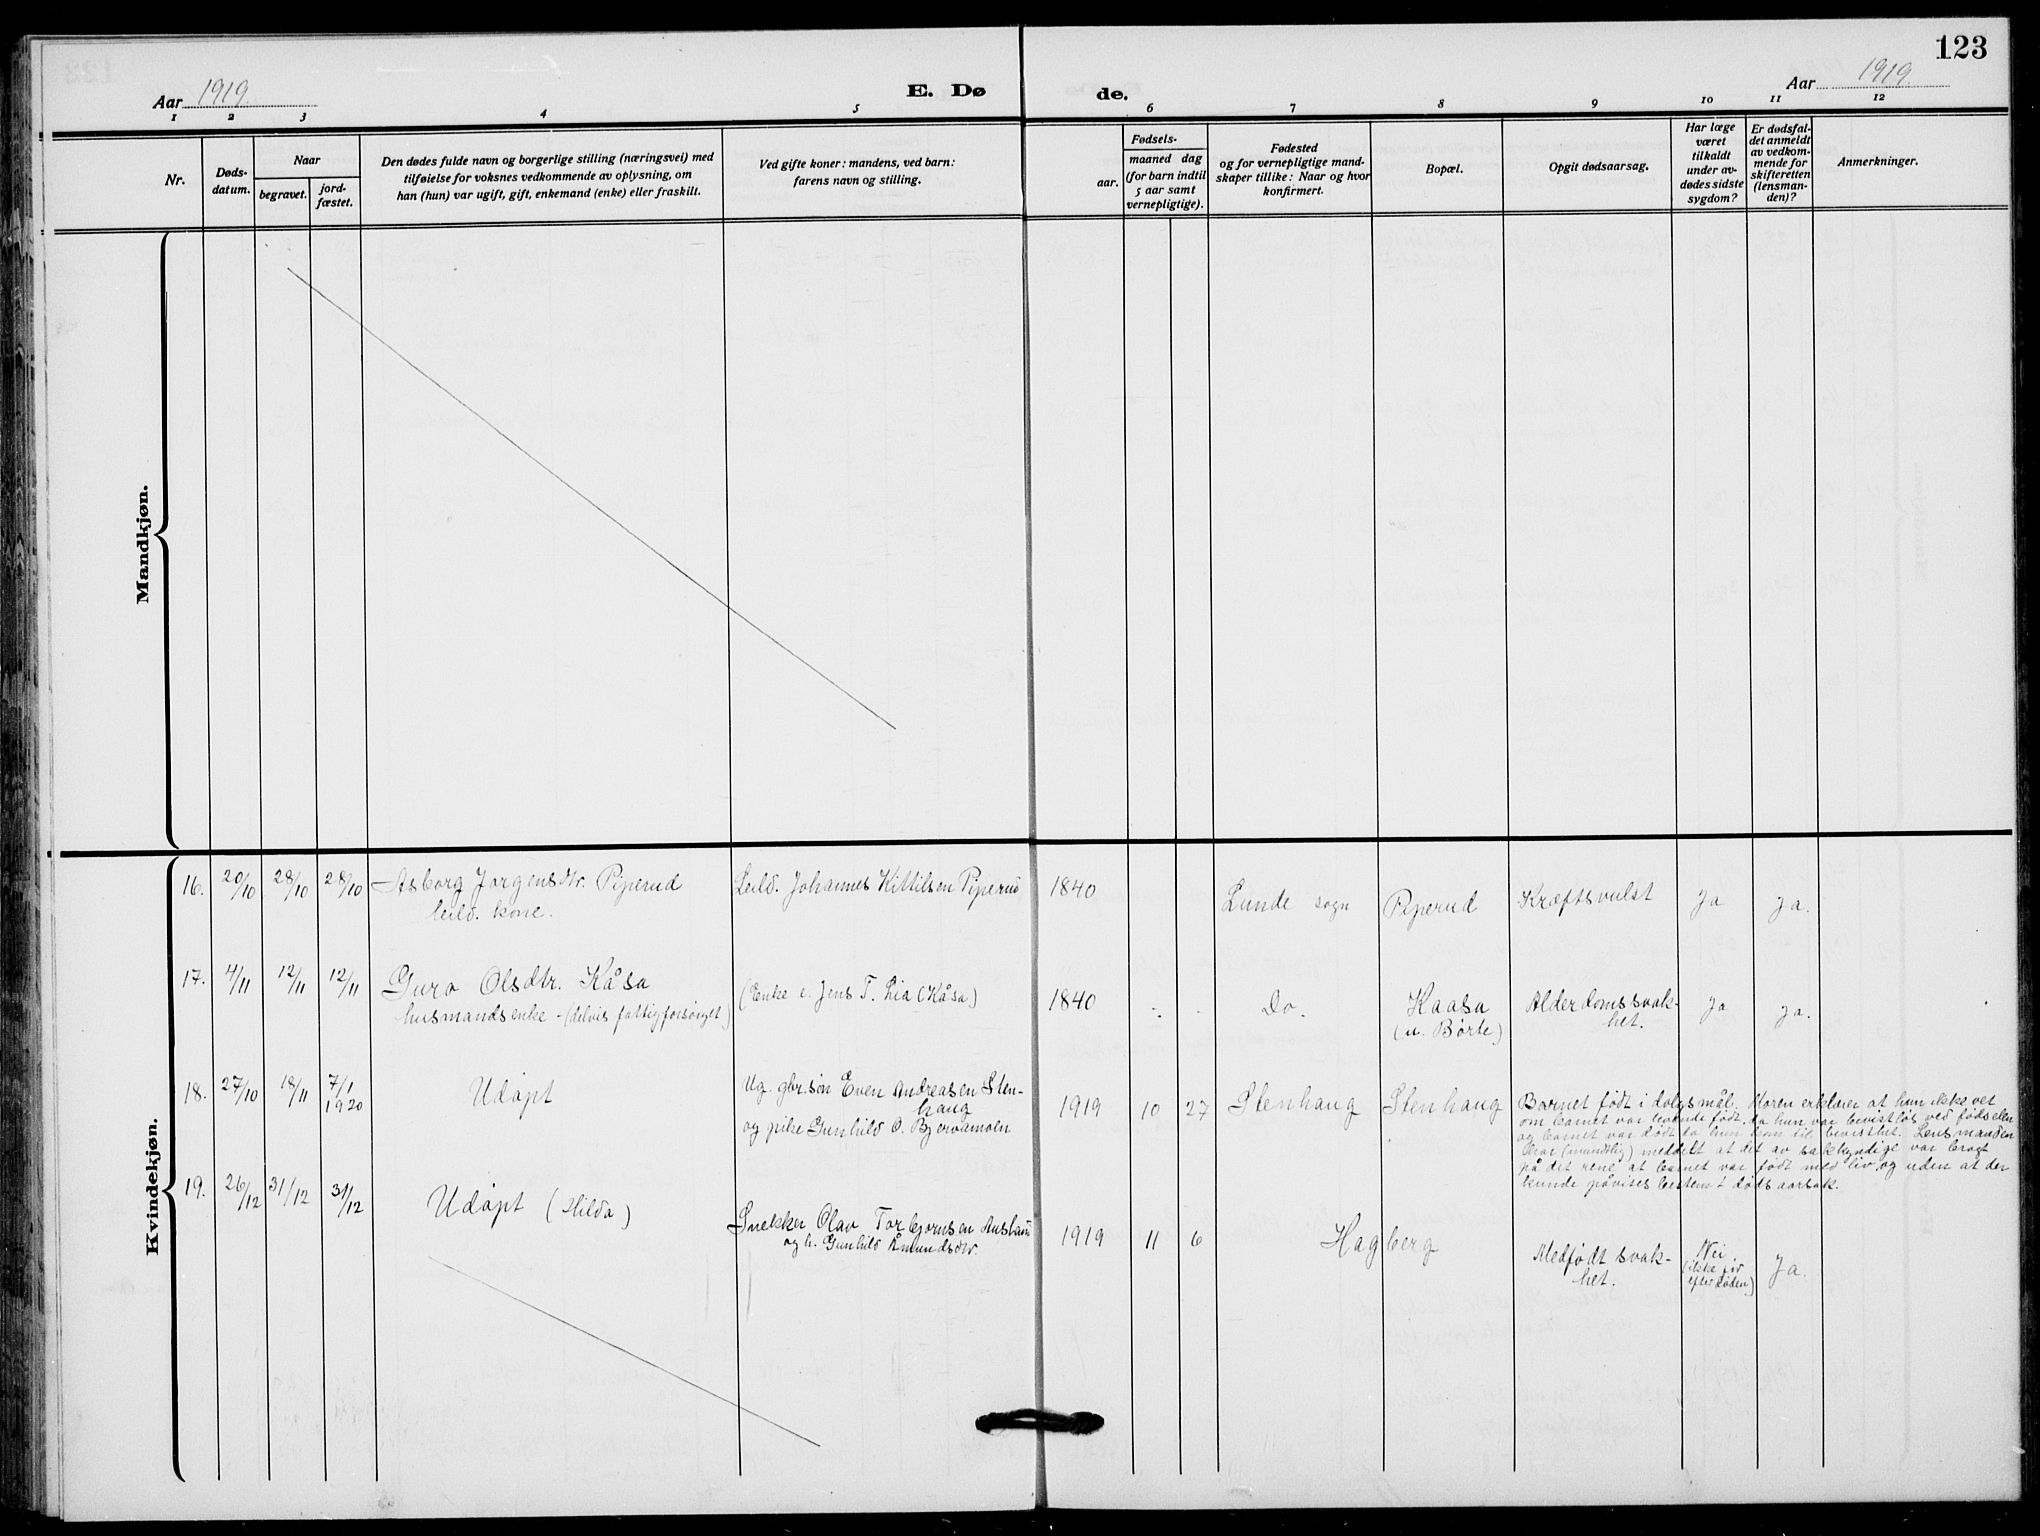 123
Aar 1919.
E. Dø
de.
Aar 1919.
1 2 3 4 5 6 7 8 9 10 11 12
Nr.
Døds-
datum.
Naar
begravet.
jord-
fæstet.
Den dødes fulde navn og borgerlige stilling (næringsvei) med
tilføielse for voksnes vedkommende av oplysning, om
han (hun) var ugift, gift, enkemand (enke) eller fraskilt.
Ved gifte koner: mandens, ved barn:
farens navn og stilling.
Fødsels-
aar.
maaned dag
(for barn indtil
5 aar samt
vernepligtige).
Fødested
og for vernepligtige mand-
skaper tillike: Naar og hvor
konfirmert.
Bopæl.
Opgit dødsaarsag.
Har læge
været
tilkaldt
under av-
dødes sidste
sygdom?
Er dødsfal-
det anmeldt
av vedkom-
mende for
skifteretten
(lensman-
den)?
Anmerkninger.
Mandkjøn.
Kvindekjøn.
16. 20/10 28/10 28/10 Asborg Jørgensdtr. Piperud
leild. kone.
Leild. Johannes Kittilsen Piperud
1840 Lunde sogn Piperud Kræftsvulst Ja Ja.
17. 4/11 12/11 12/11 Guro Olsdtr. Kåsa
husmandsenke - (delvis fattigforsørget)
(Enke e. Jens T. Lia (Kåsa)
1840 . . Do. Kaasa
(u. Børte)
Alderdomssvak-
het.
Ja Ja.
18. 27/10 18/11 7/1
1920
Udøpt
Ug. gbr.søn Even Andreasen Sten-
haug
og pike Gunhild O. Bjervamoen
1919 10 27 Stenhaug Stenhaug
Barnet født i dølgsmål. Moren erklærer at hun ikke vet
om barnet var levende født, da hun var bevistløs ved fødselen
og barnet var dødt da hun kom til bevissthet. Lensmanden
har (mundtlig) meddelt at det av sakkyndige var bragt
på det rene, at barnet var født med liv og uden at der
kunde påvises bestemt dødsaarsak.
19. 26/12 31/12 31/12 Udøpt (Hilda)
Snekker Olav Torbjørnsen
og h. Gunhild Åmundsdtr.
1919 11 6 Hagberg
Medfødt svak-
het.
Nei.
(ikke før
efter døden)
Ja.